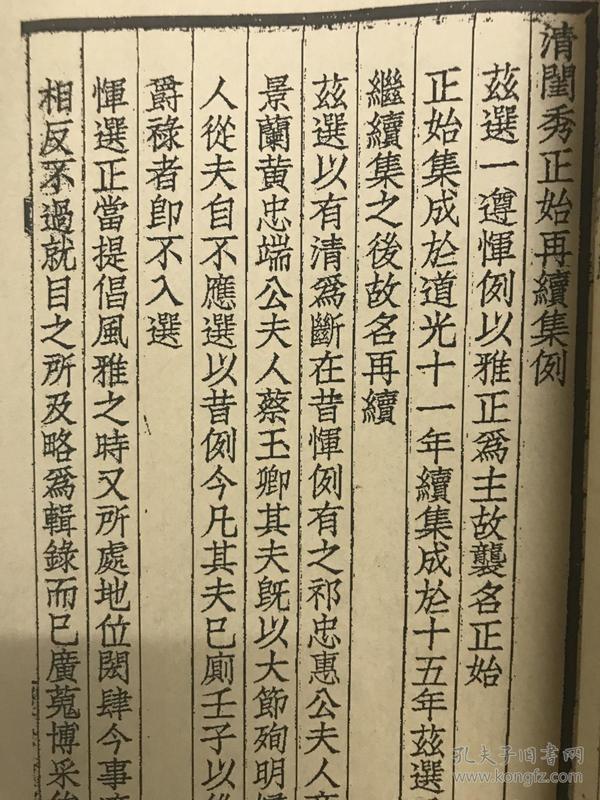 清閨秀正始再續集例
茲選一遵惲例以雅正爲主故襲名正始
正始集成於道光十一年續集成於十五年茲選
繼續集之後故名再續
茲選以有清爲斷在昔惲例有之祁忠惠公夫人商
景蘭黃忠端公夫人蔡玉卿其夫旣以大節殉明婦
人從夫自不應選以昔例今凡其夫已廁壬子以後
爵祿者卽不入選
惲選正當提倡風雅之時又所處地位閎肆今事
相反不過就目之所及略爲輯錄而已廣蒐博采
孔夫子旧书网
www.kongfz.com